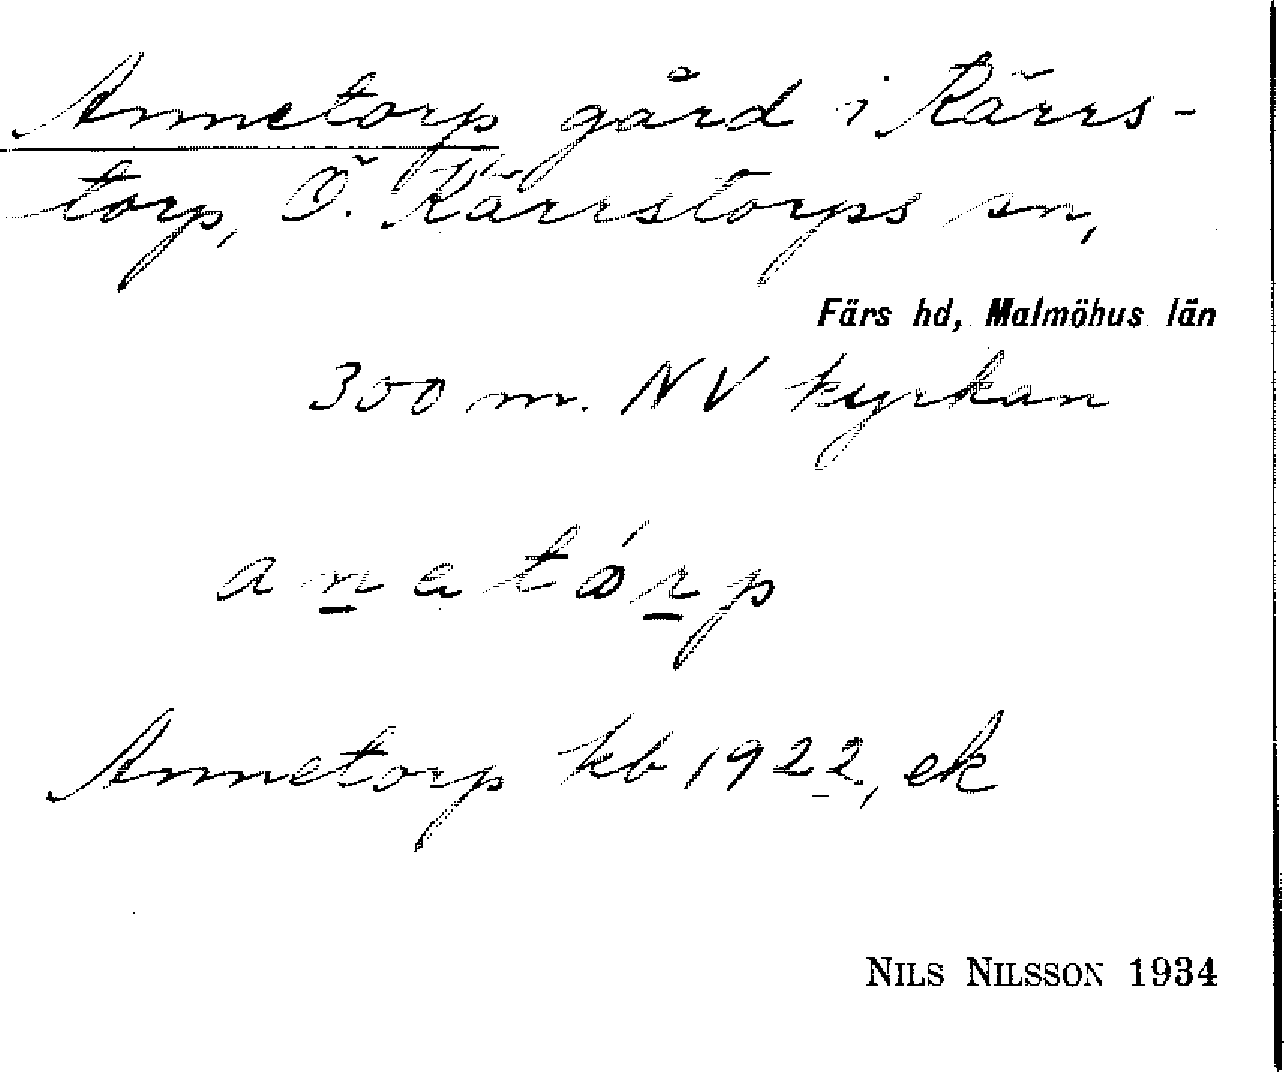 Annetorp gård i Kärrs-
torp, Ö. Kärrstorps sn,
Färs hd, Malmöhus län
300 m. NV kyrkan
anatórp
Annetorp kb 1922, ek
NILS NILSSON 1934